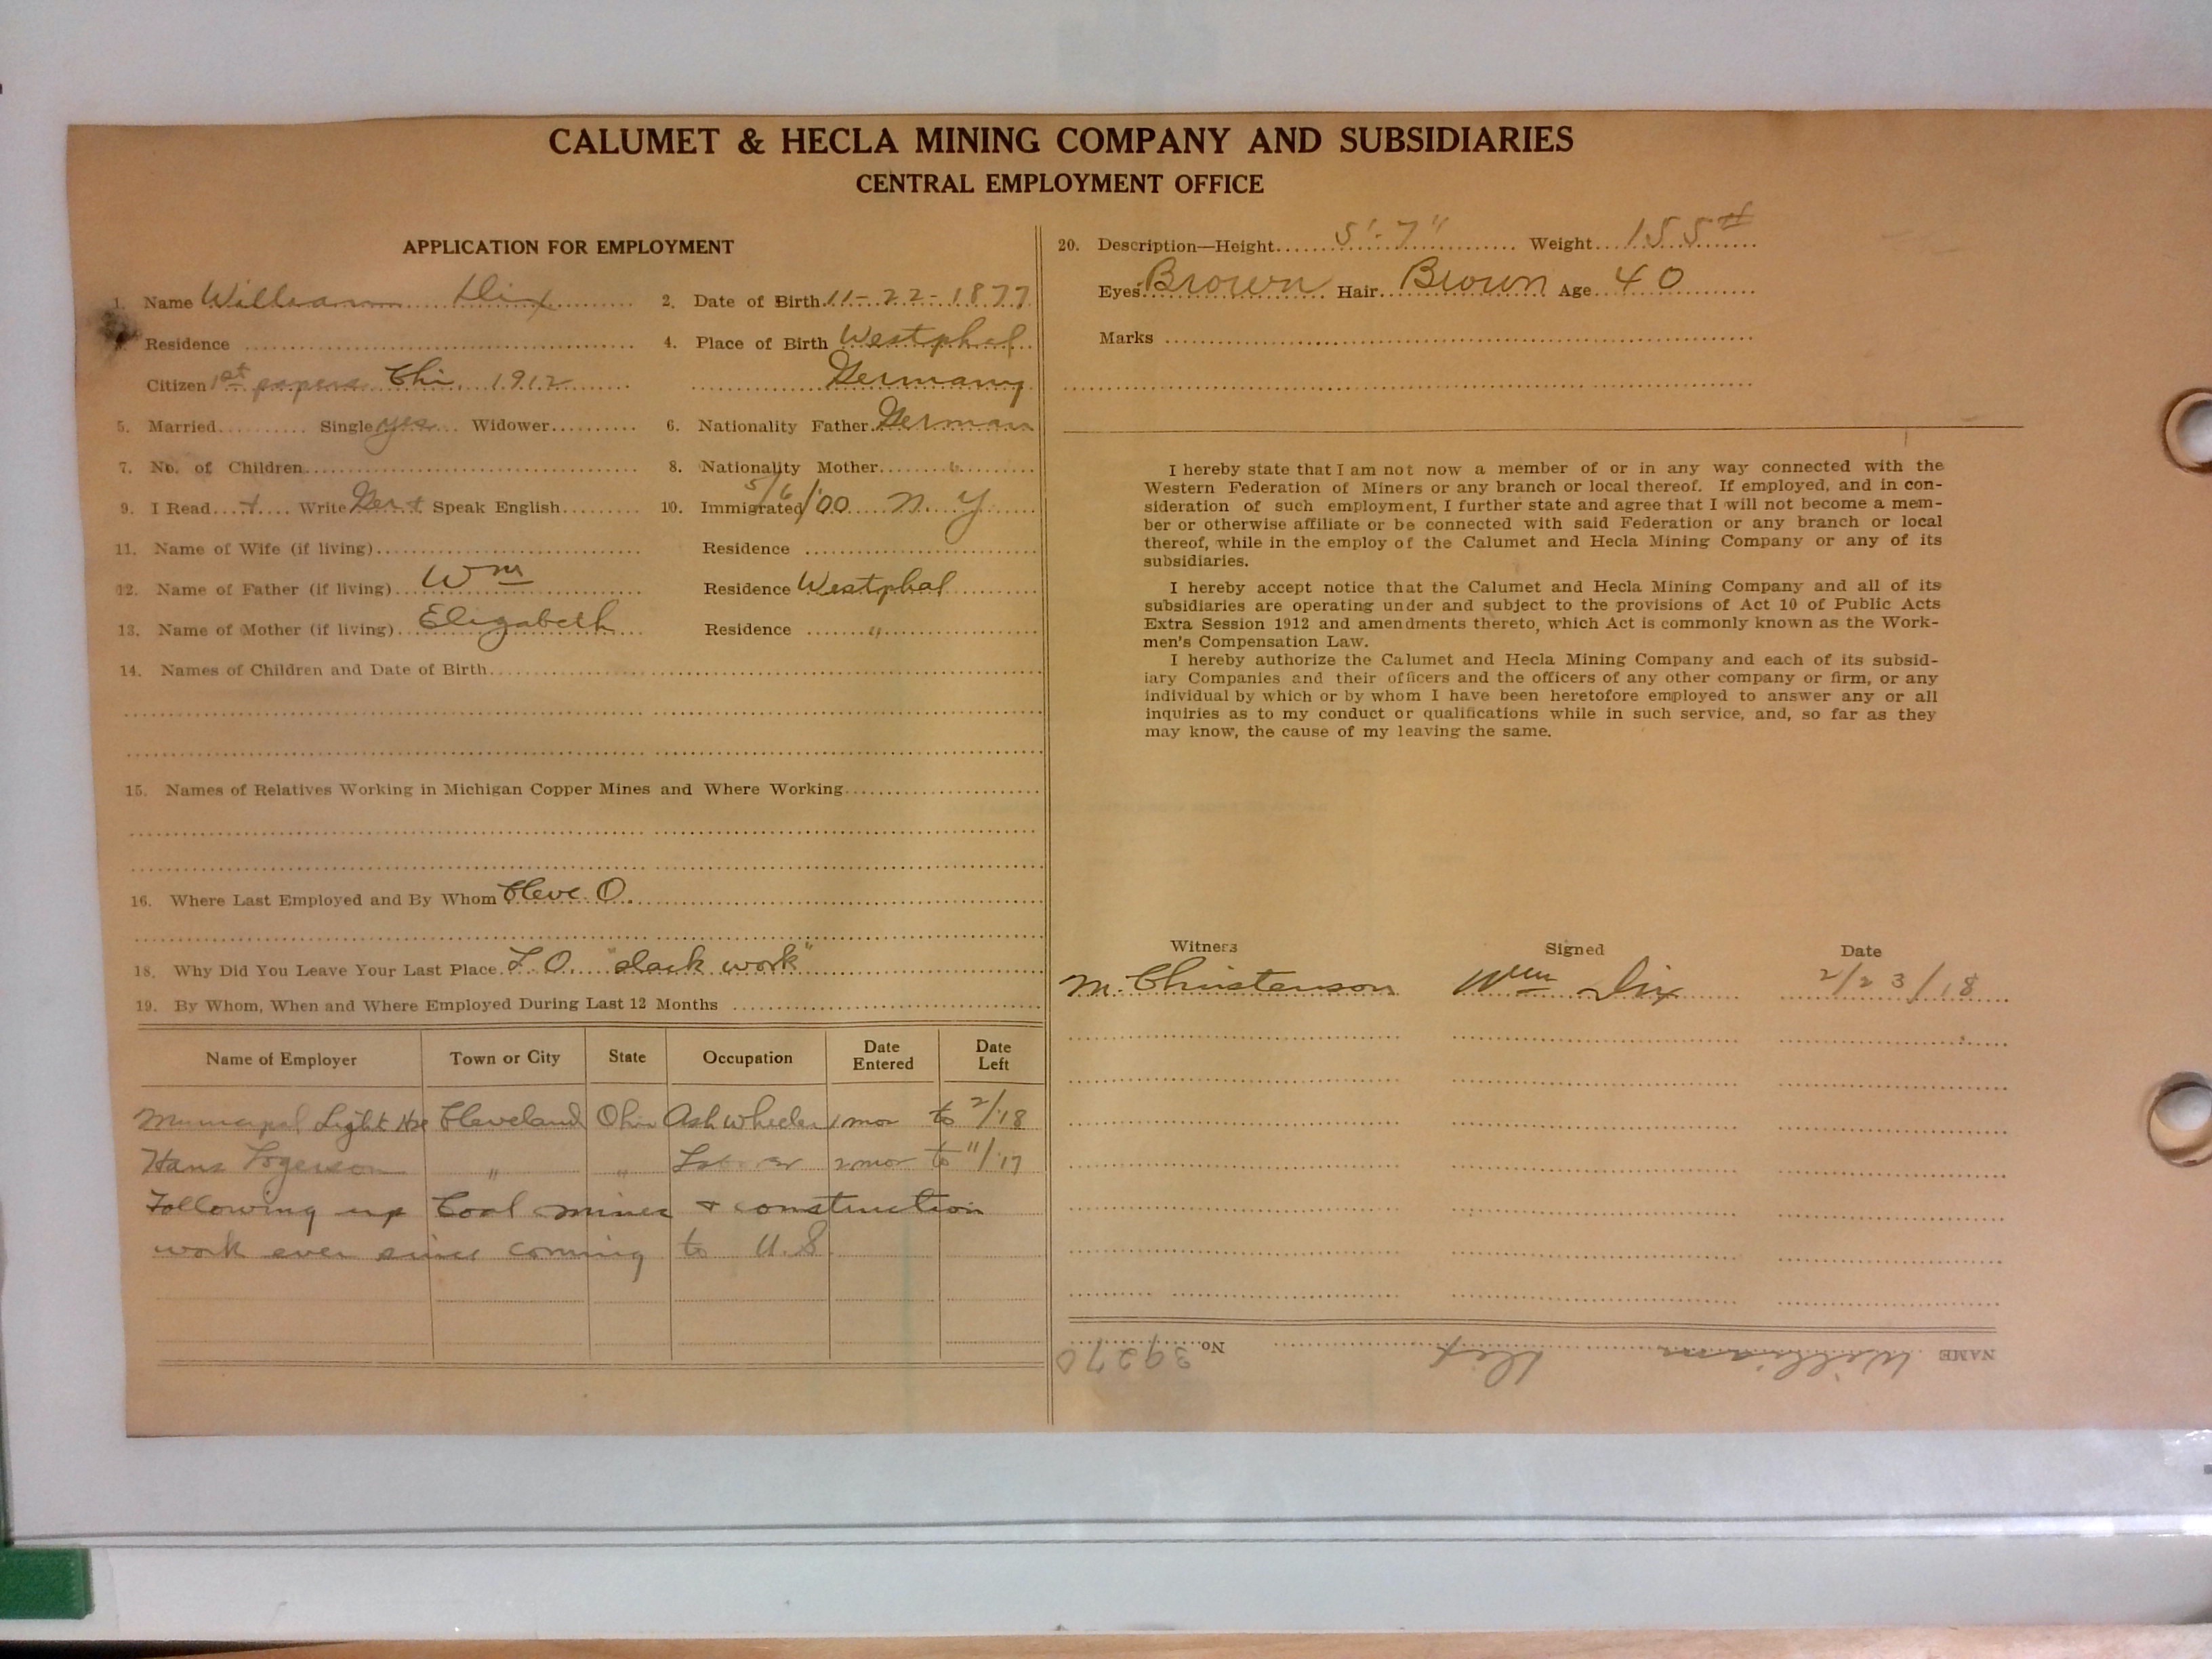 CALUMET & HECLA MINING COMPANY AND SUBSIDIARIES
CENTRAL EMPLOYMENT OFFICE
APPLICATION FOR EMPLOYMENT
1. Name William Dix
2. Date of Birth 11-22-1877
Residence
4. Place of Birth Westphal
Citizen 1st papers Chi. 1912
Germany
5. Married Single yes Widower
6. Nationality Father German
7. No. of Children
8. Nationality Mother "
9. I Read + Write Ger + Speak English
10. Immigrated 5/6/'00 N.Y
11. Name of Wife (if living)
Residence
12. Name of Father (if living) Wm
Residence Westphal
13. Name of Mother (if living) Elizabeth
Residence "
14. Names of Children and Date of Birth
15. Names of Relatives Working in Michigan Copper Mines and Where Working
16. Where Last Employed and By Whom Cleve. O.
18. Why Did You Leave Your Last Place. L.O. "slack work"
19. By Whom, When and Where Employed During Last 12 Months
Name of Employer Town or City State Occupation Date Entered Date Left
Municipal Light Hse Cleveland Ohio Ash Wheeler 1 mos to 2/18
Hans " " Laborer 2 mos to 11/17
Following up Coal mines + construction
work ever since coming to U.S.
20. Description—Height 5'-7" Weight 155#
Eyes Brown Hair Brown Age 40
Marks
I hereby state that I am not now a member of or in any way connected with the
Western Federation of Miners or any branch or local thereof. If employed, and in con-
sideration of such employment, I further state and agree that I will not become a mem-
ber or otherwise affiliate or be connected with said Federation or any branch or local
thereof, while in the employ of the Calumet and Hecla Mining Company or any of its
subsidiaries.
I hereby accept notice that the Calumet and Hecla Mining Company and all of its
subsidiaries are operating under and subject to the provisions of Act 10 of Public Acts
Extra Session 1912 and amendments thereto, which Act is commonly known as the Work-
men's Compensation Law.
I hereby authorize the Calumet and Hecla Mining Company and each of its subsid-
iary Companies and their officers and the officers of any other company or firm, or any
individual by which or by whom I have been heretofore employed to answer any or all
inquiries as to my conduct or qualifications while in such service, and, so far as they
may know, the cause of my leaving the same.
Witness Signed Date
M. Christenson Wm Dix 2/23/18
NAME William Dix No. 39270